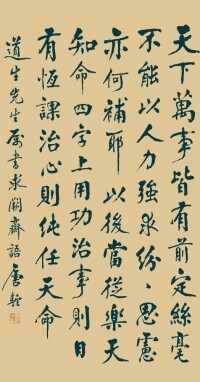 天下萬事皆有前定絲毫
不能以人力強求紛〻思慮
亦何補耶以後當從樂天
知命四字上用功治事則日
有恆課治心則純任天命
道生先生屬書求闕齋語 唐駝